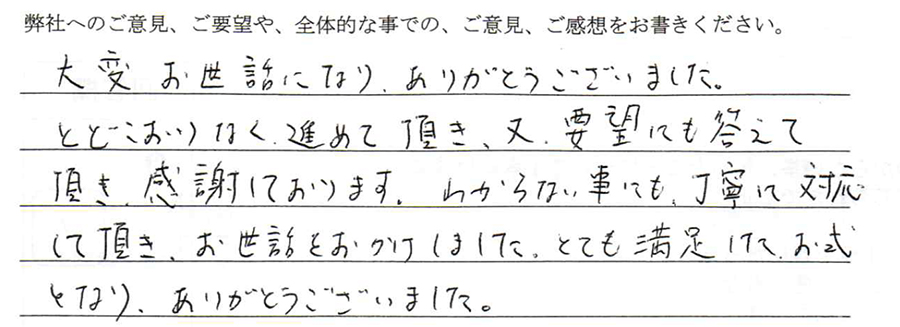 弊社へのご意見、ご要望や、全体的な事での、ご意見、ご感想をお書きください。
大変お世話になり、ありがとうございました。
とどこおりなく、進めて頂き、又、要望にも答えて
頂き、感謝しております。わからない事にも、丁寧に対応
して頂き、お世話をおかけしました。とても満足した、お式
となり、ありがとうございました。